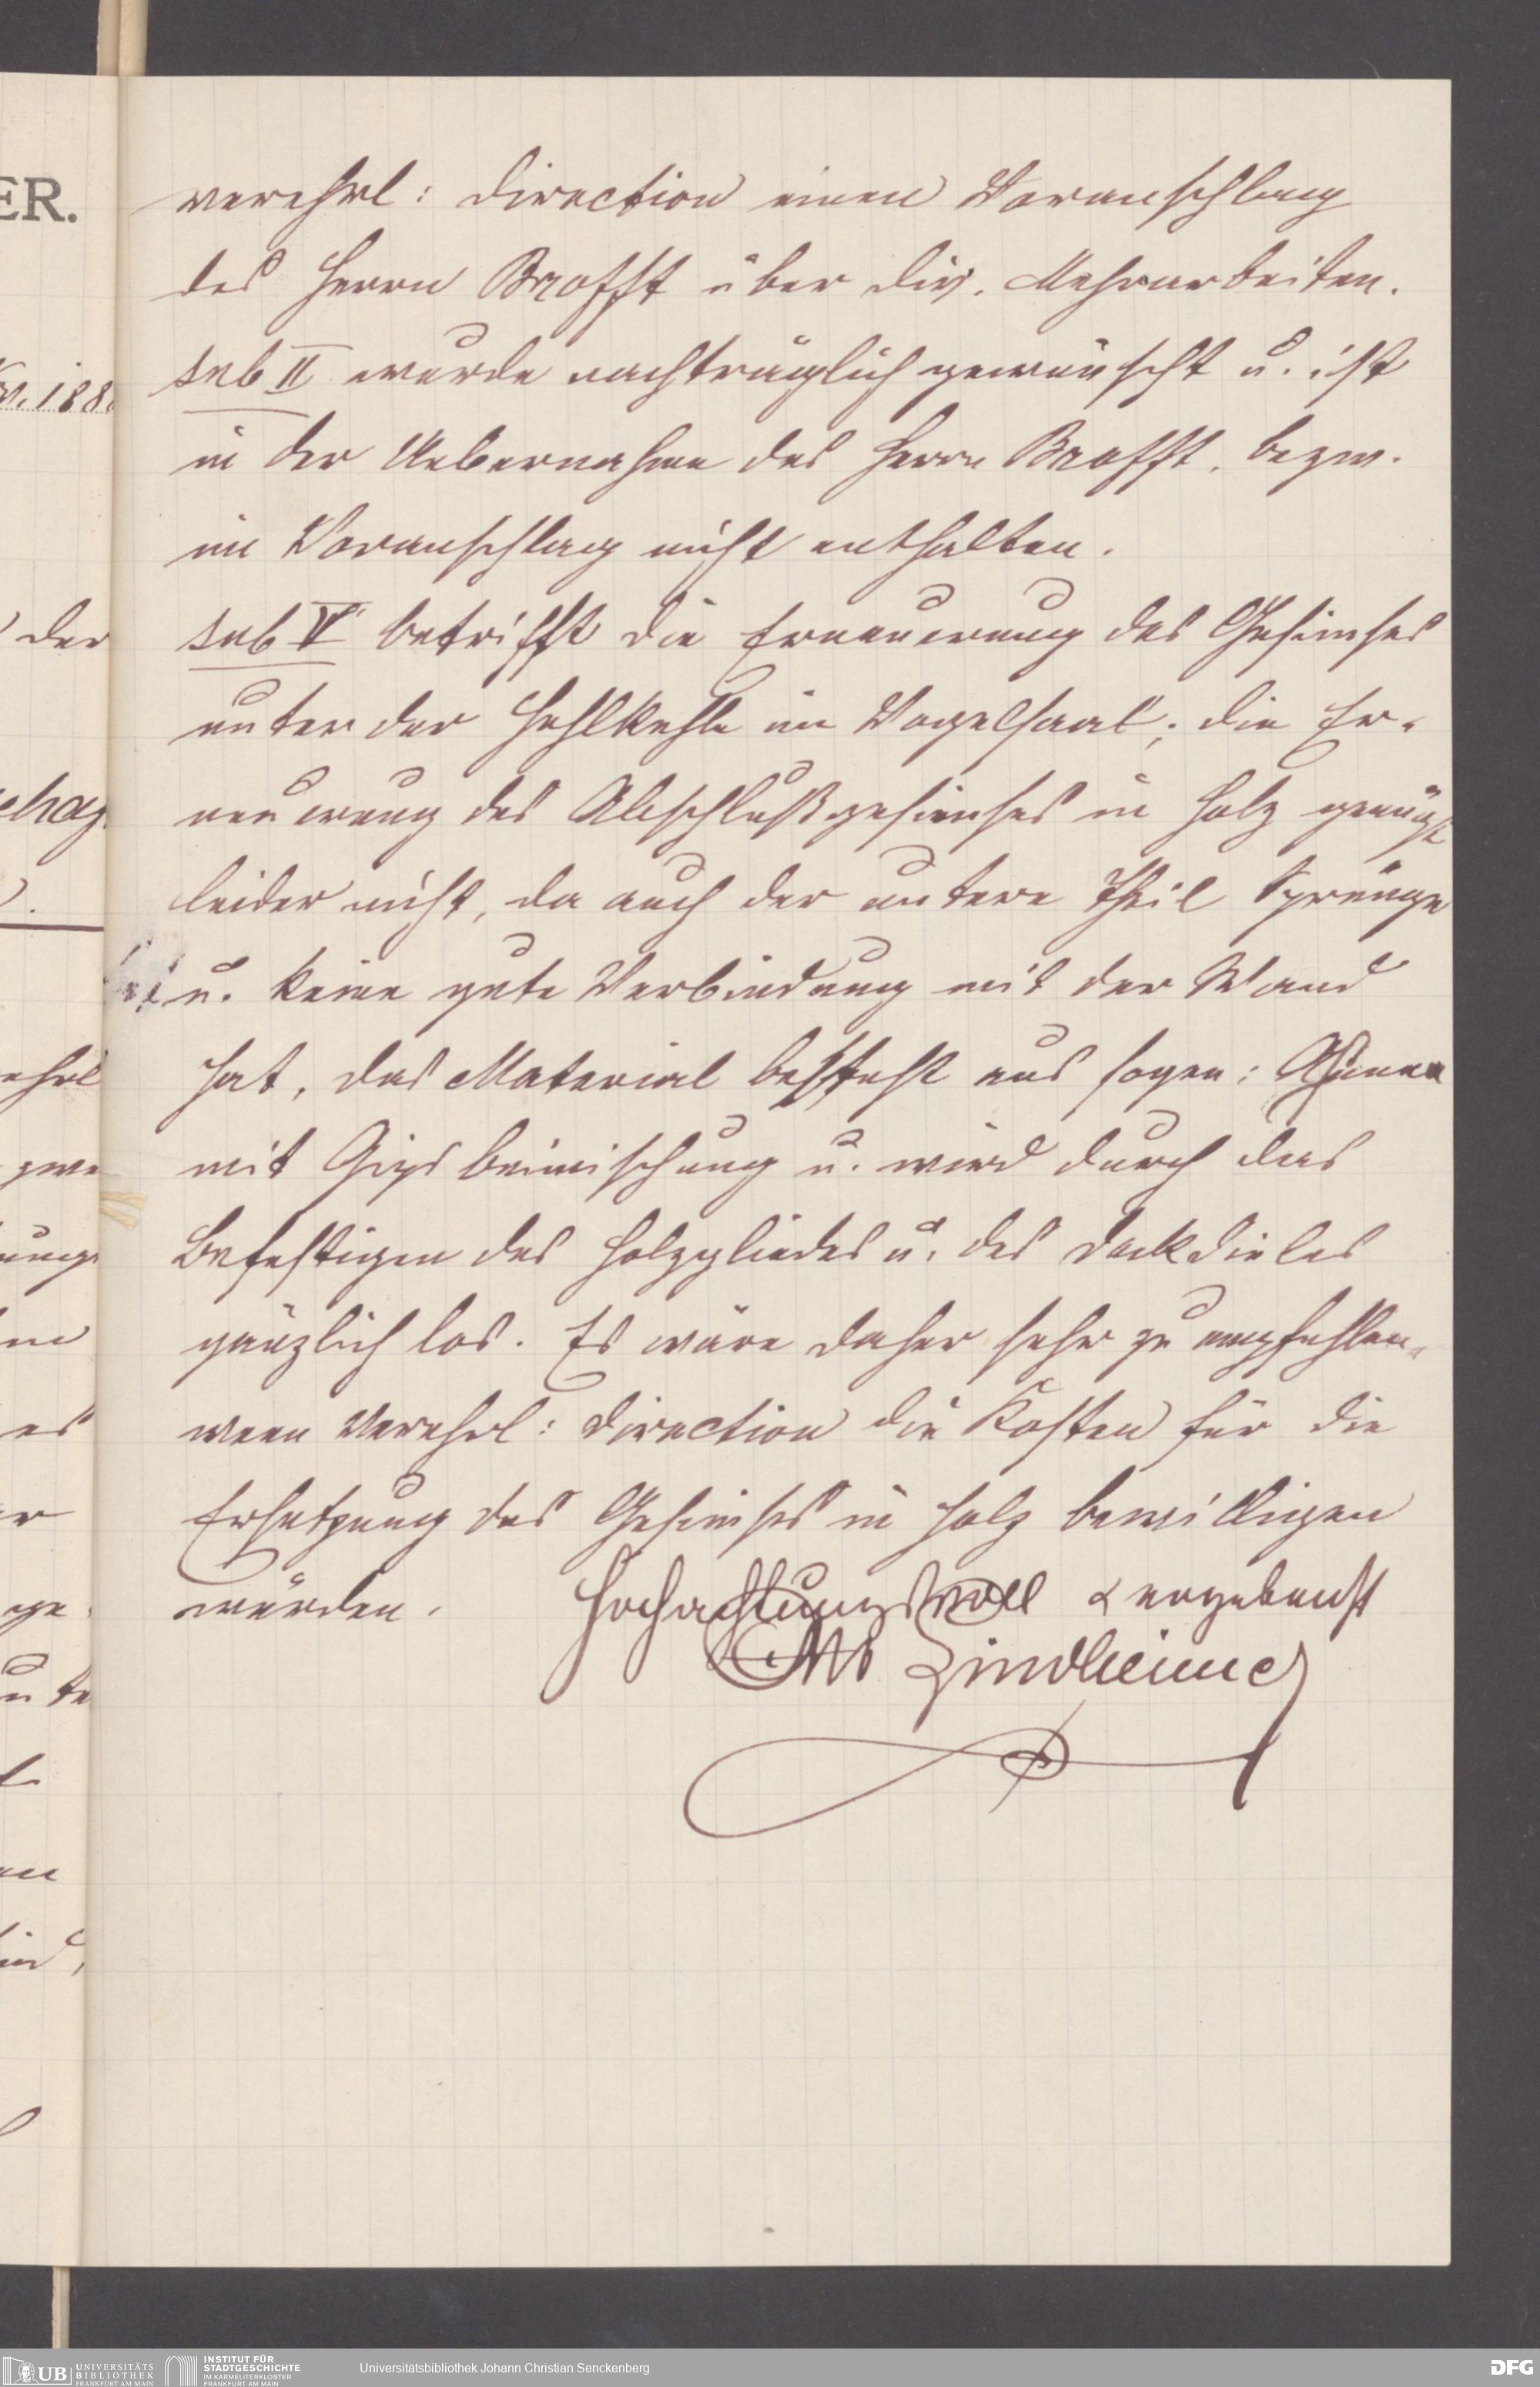 verehrl: Direction einen Voranschlag
des Herrn Brofft über div. Mehrarbeiten.
sub II wurde nachträglich gewünscht u. ist
in der Uebernahme des Herrn Brofft, bezw.
im Voranschlag nicht enthalten.
sub V betrifft die Erneuerung des Gesimses
unter der Hohlkehle im Vogelsaal; die Er-
neuerung des Abschlußgesimses in Holz genügt
leider nicht, da auch der untere Theil Sprünge
u. keine gute Verbindung mit der Wand
hat, das Material besteht aus sogen:
mit Gips beimischung u. wird durch das
Befestigen des Holzgliedes u. des Deckdieles
gänzlich los. Es wäre daher sehr zu empfehlen,
wenn Verehrl: Direction die Kosten für die
Ersetzung des Gesimses in Holz bewilligen
würden. Hochachtungsvoll & ergebenst
Otto Lindheimer
ER.
188
der
ehrl
zwe
ung
es
ge
ute
UB UNIVERSITÄTS
BIBLIOTHEK
FRANKFURT AM MAIN
INSTITUT FÜR
STADTGESCHICHTE
IM KARMELITERKLOSTER
FRANKFURT AM MAIN
Universitätsbibliothek Johann Christian Senckenberg
DFG